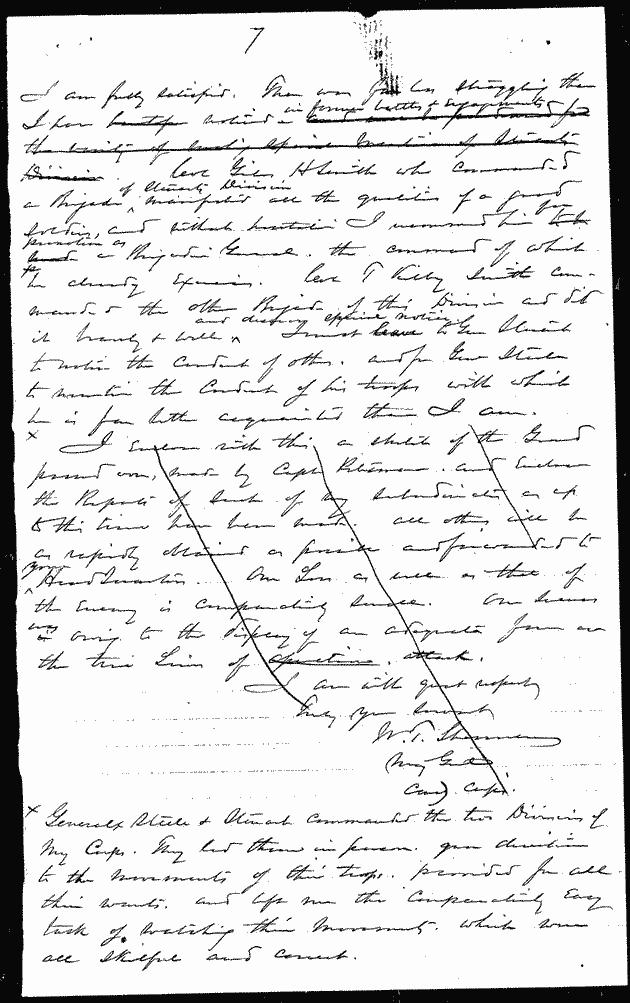 7
I am fully satisfied. There was far less straggling than
I have heretofore noticed in former battles & engagements
the of making special mention of Stuarts
Division. Col Giles A Smith who commanded
a Brigade of Stuarts Division manifested all the qualities of a good
soldier, and without hesitation I recommend him for
promotion as a Brigadier General. the command of which
he already Exercises. Col T Kilby Smith com-
manded the other Brigade of this Division and did
it bravely & well and deserves special notice. I must leave to Gen Stuart
to notice the conduct of others. and for Gen Steele
to mention the conduct of his troops with which
he is far better acquainted than I am.
x I Enclose with this a sketch of the Ground
made by Capt and Enclose
the Reports of such of my subordinates as up
to this time have been made. all others will be
as rapidly obtained as possible and forwarded to
your Head Quarters. Our Loss as well as that of
the Enemy is comparatively small. Our success
was is owing to the display of an adequate force on
the true Lines of operations. attack.
I am with great respect
Truly Your Servant
W.T. Sherman
Maj Genl
Comg Corps.
x Generals Steele & Stuart commanded the two Divisions of
My Corps. They led them in person. gave direction
to the movements of their troops. provided for all
their wants. and left me the comparatively Easy
task of watching their movements. which were
all skilful and correct.